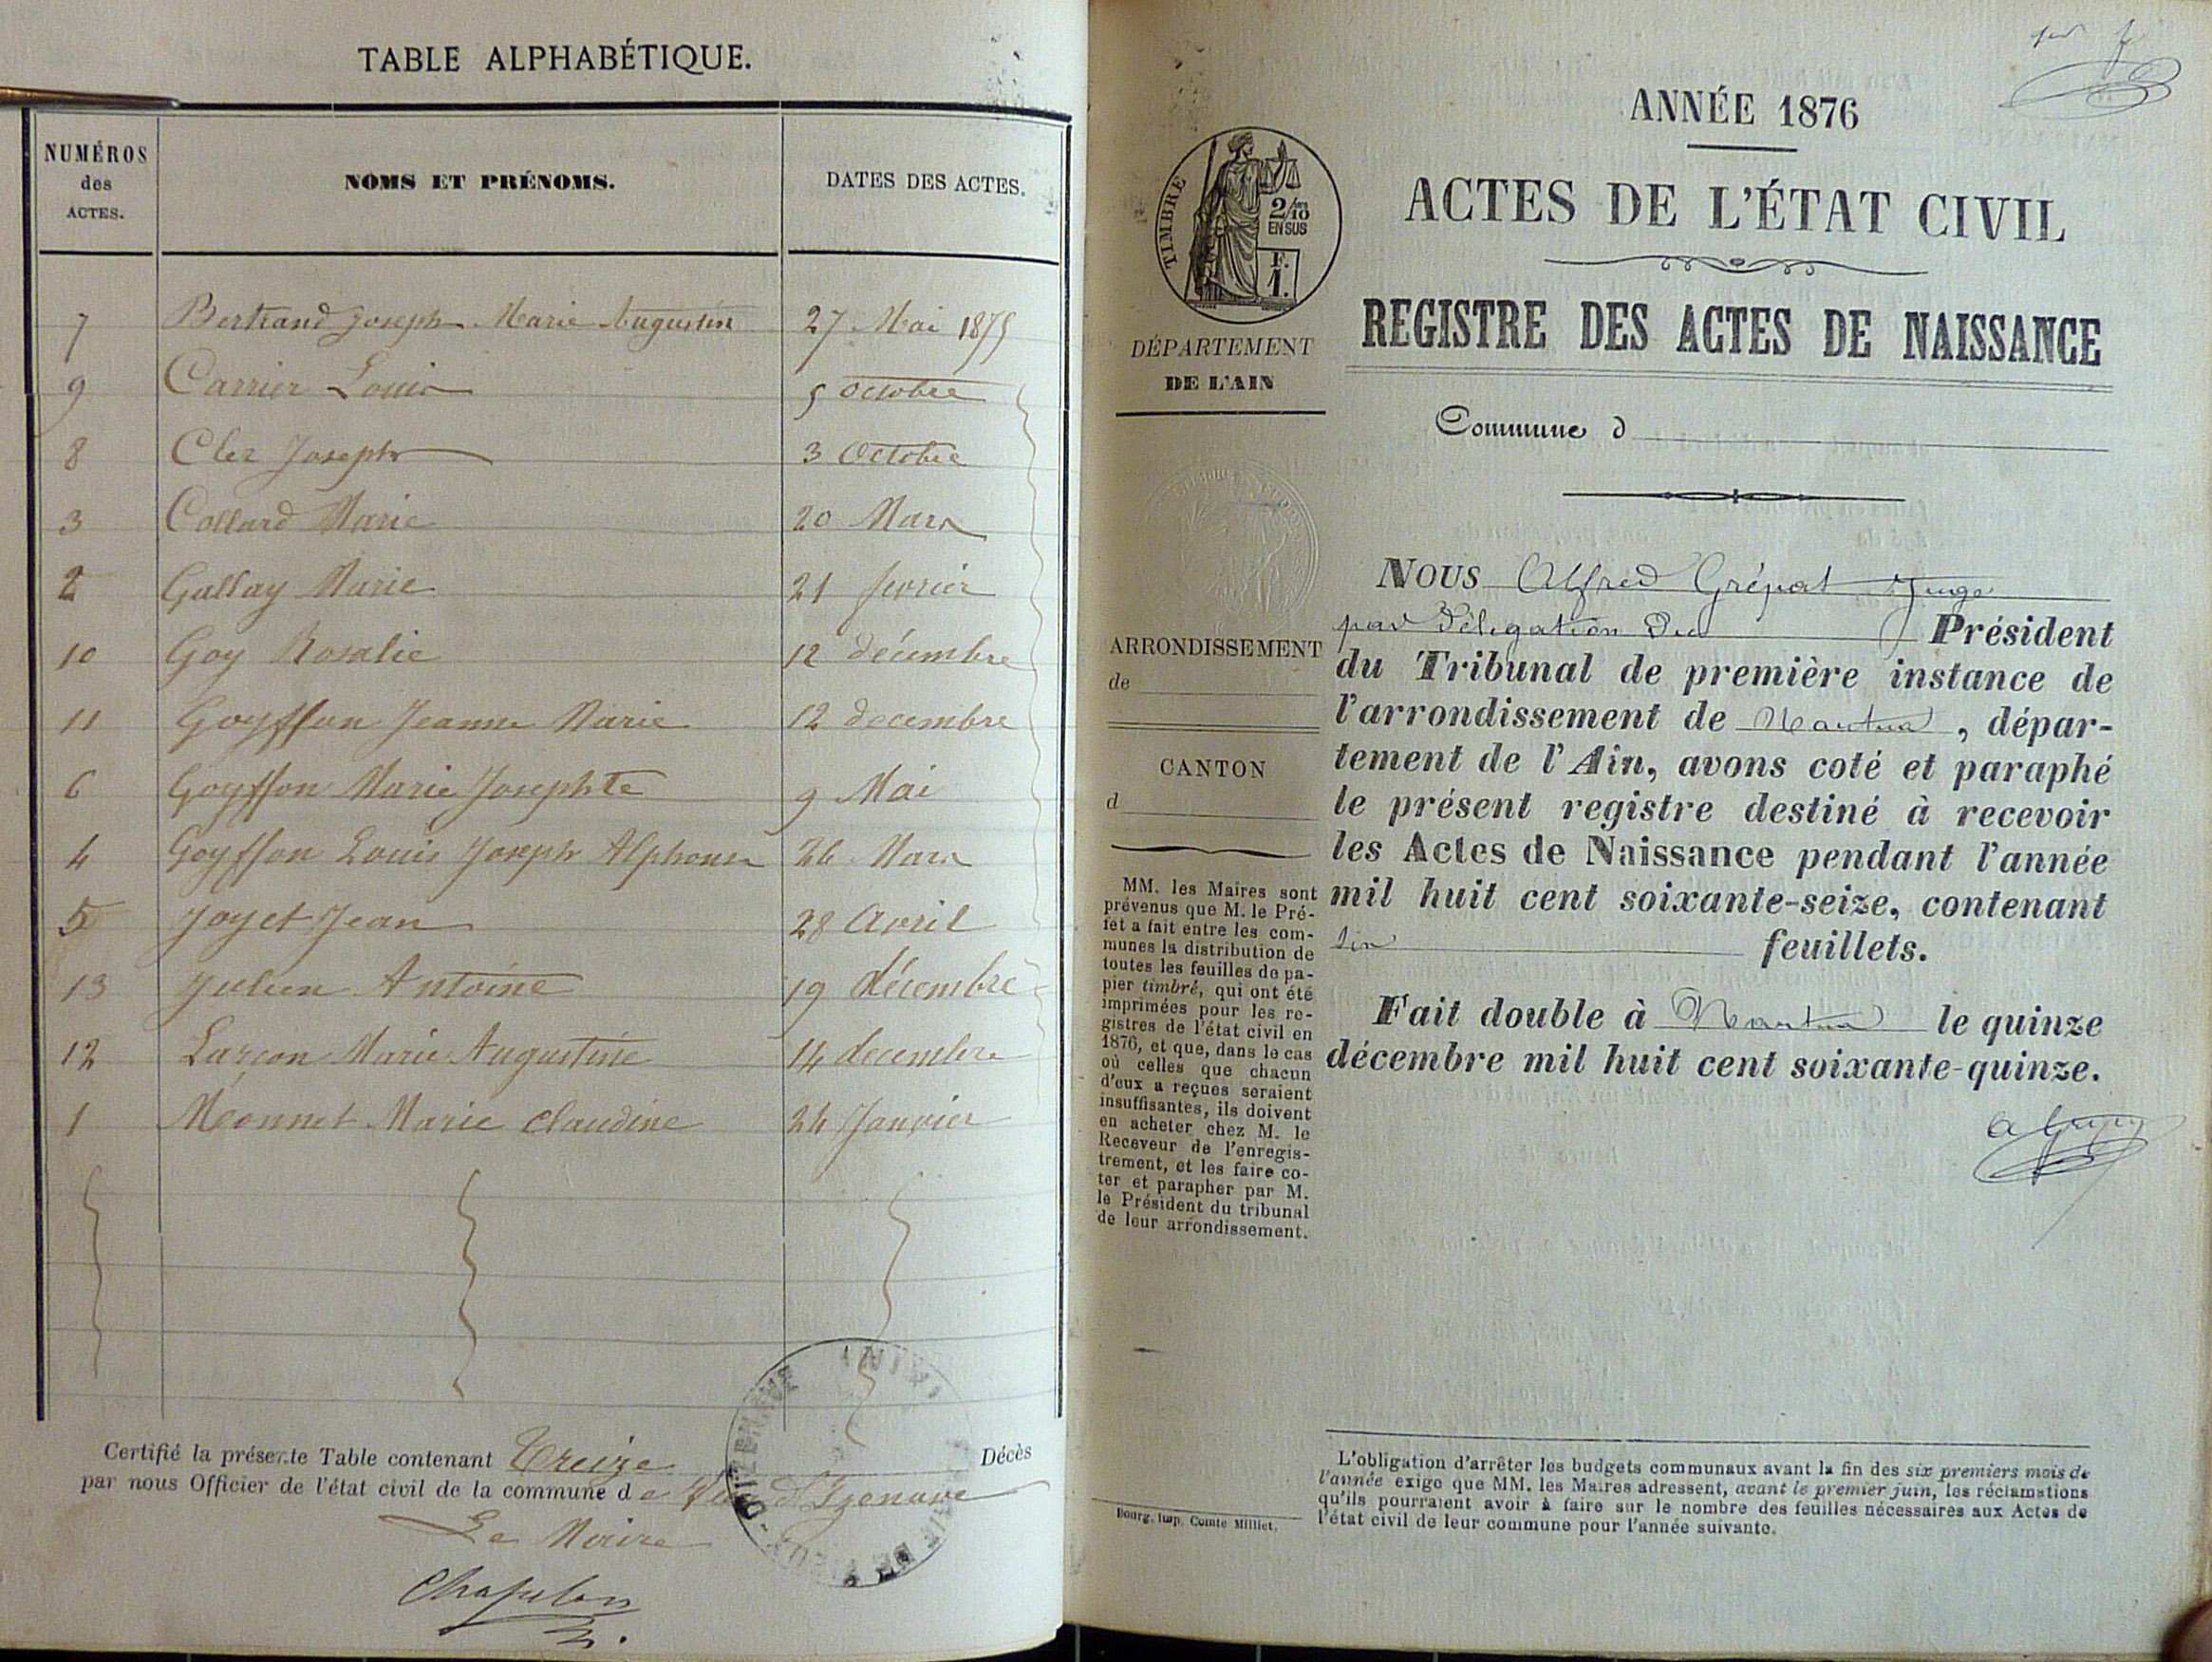 TABLE ALPHABÉTIQUE.
NUMÉROS des ACTES.
NOMS ET PRÉNOMS.
DATES DES ACTES.
7 Bertrand Joseph Marie Augustin 27 Mai 1875
9 Carrier Louis 5 octobre
8 Clez Joseph 3 Octobre
3 Collard Marie 20 Mars
2 Gallay Marie 21 fevrier
10 Goy Rosalie 12 décembre
11 Goyffon Jeanne Marie 12 decembre
6 Goyffon Marie Josephte 9 Mai
4 Goyffon Louis Joseph Alphonse 26 Mars
5 Joyet Jean 28 Avril
13 Julien Antoine 19 décembre
12 Larçon Marie Augustine 14 decembre
1 Monnet Marie Claudine 24 Janvier
Certifié la présente Table contenant Treize Décès
par nous Officier de l'état civil de la commune de d'Izenave
Le Maire
Chapelon
1er f
ANNÉE 1876
ACTES DE L'ÉTAT CIVIL
REGISTRE DES ACTES DE NAISSANCE
TIMBRE
2/10 EN SUS
F. 1.
DÉPARTEMENT
DE L'AIN
Commune d
ARRONDISSEMENT
de
CANTON
d
MM. les Maires sont
prévenus que M. le Pré-
fet a fait entre les com-
munes la distribution de
toutes les feuilles de pa-
pier timbré, qui ont été
imprimées pour les re-
gistres de l'état civil en
1876, et que, dans le cas
où celles que chacun
d'eux a reçues seraient
insuffisantes, ils doivent
en acheter chez M. le
Receveur de l'enregis-
trement, et les faire co-
ter et parapher par M.
le Président du tribunal
de leur arrondissement.
NOUS Alfred Grépat Juge
par délégation du Président
du Tribunal de première instance de
l'arrondissement de Nantua, dépar-
tement de l'Ain, avons coté et paraphé
le présent registre destiné à recevoir
les Actes de Naissance pendant l'année
mil huit cent soixante-seize, contenant
feuillets.
Fait double à Nantua le quinze
décembre mil huit cent soixante-quinze.
L'obligation d'arrêter les budgets communaux avant la fin des six premiers mois de
l'année exige que MM. les Maires adressent, avant le premier juin, les réclamations
qu'ils pourraient avoir à faire sur le nombre des feuilles nécessaires aux Actes de
l'état civil de leur commune pour l'année suivante.
Bourg, Imp. Comte Milliet.